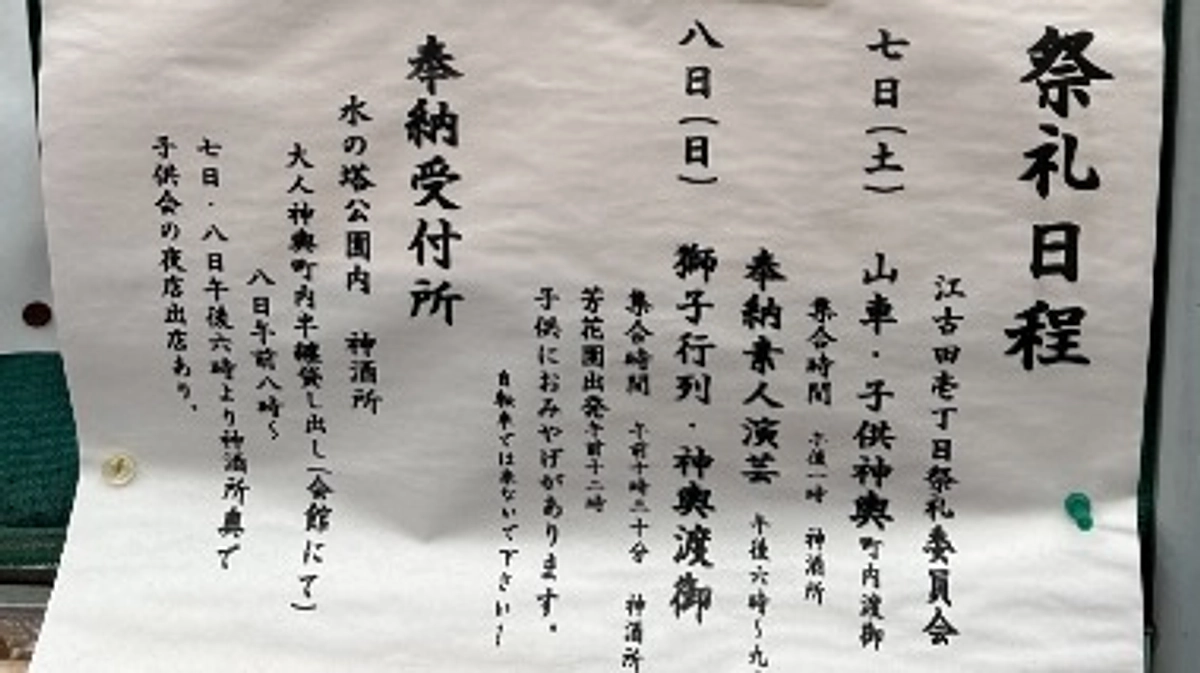 祭礼日程
江古田壱丁目祭礼委員会
七日(土) 山車・子供神輿町内渡御
集合時間 午後一時 神酒所
奉納素人演芸 午後六時〜九
八日(日) 獅子行列・神輿渡御
集合時間 午前十時三十分 神酒所
芳花園出発午前十二時
子供におみやげがあります。
自転車では来ないで下さい!
奉納受付所
水の塔公園内 神酒所
大人神輿町内半纏貸し出し(会館にて)
八日午前八時〜
七日・八日午後六時より神酒所奥で
子供会の夜店出店あり。